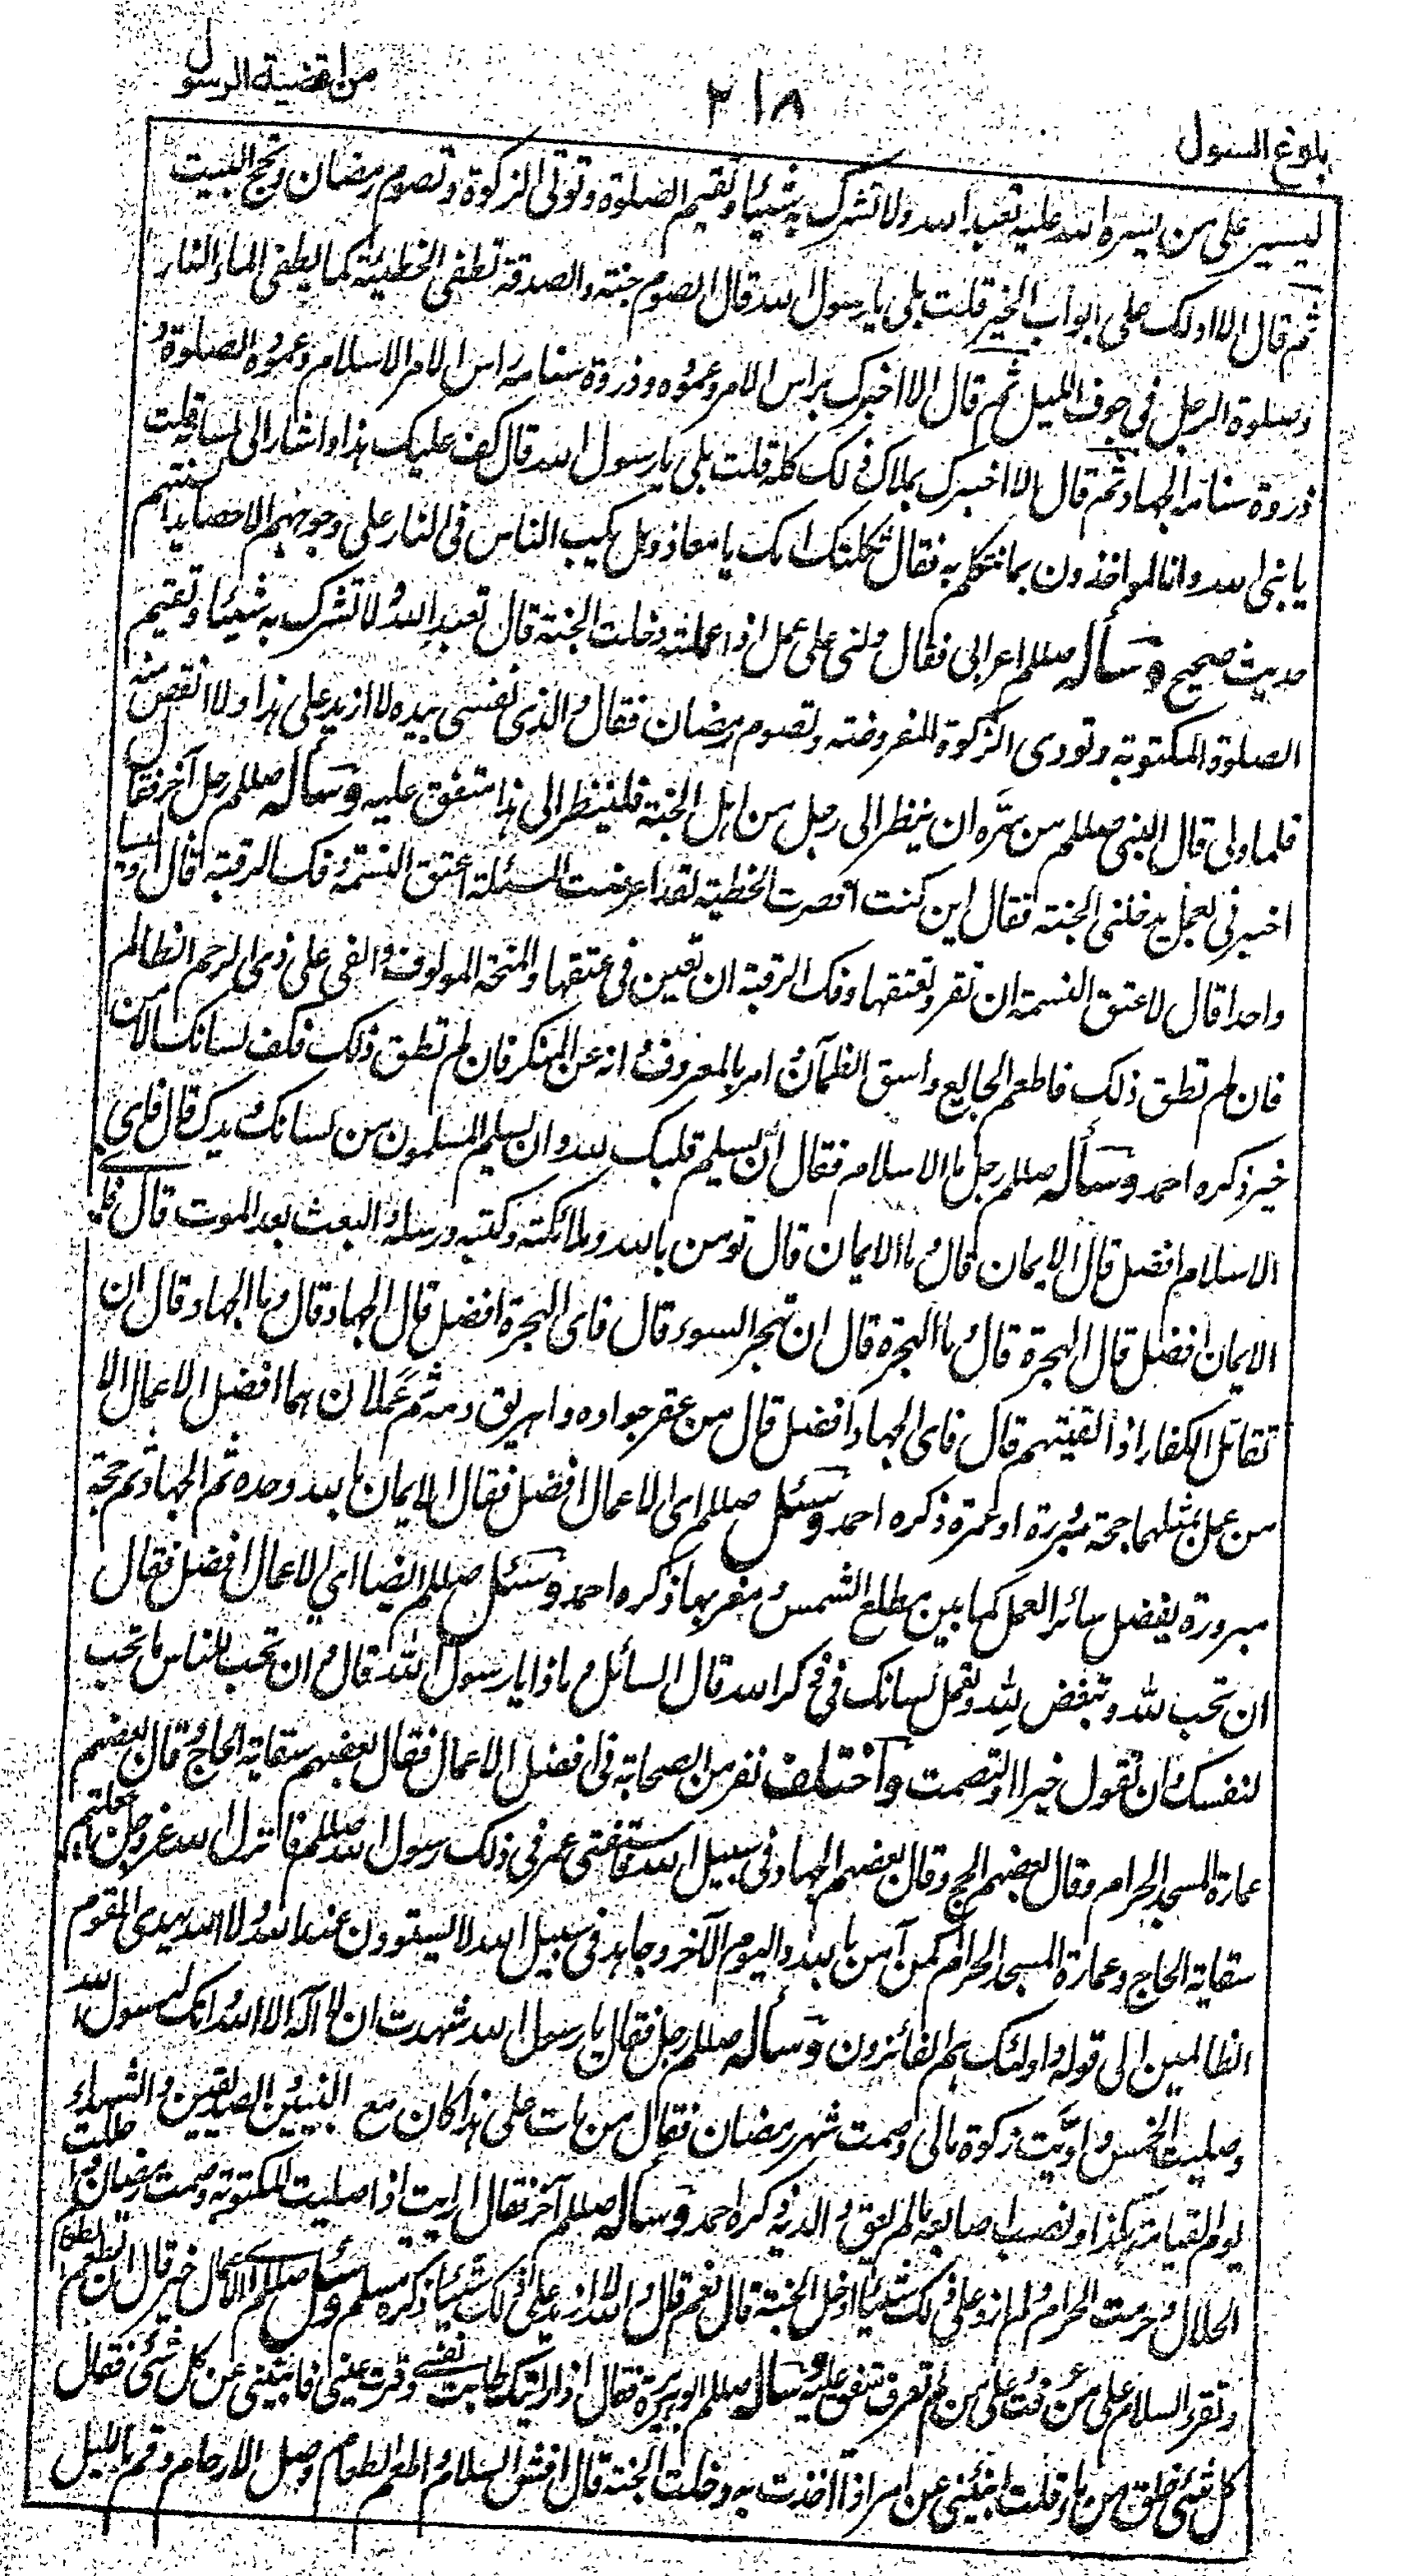 من اقضية الرسول
٢١٨
بلوغ السول
ليسير على من يسره الله عليه تعبد الله ولا تشرك به شيئا وتقيم الصلوة وتوتى الزكوة وتصوم رمضان وتحج البيت
ثم قال الا ادلك على ابواب الخير قلت بلى يا رسول الله قال الصوم جنة والصدقة تطفى الخطيئة كما يطفى الماء النار
وصلوة الرجل فى جوف الليل ثم قال الا اخبرك براس الامر وعموده وذروة سنامه راس الامر الاسلام وعموده الصلوة و
ذروة سنامه الجهاد ثم قال الا اخبرك بملاك ذلك كله قلت بلى يا رسول الله قال كف عليك هذا واشار الى لسانه قلت
يا نبى الله وانا لمواخذون بما نتكلم به فقال ثكلتك امك يا معاذ وهل يكب الناس فى النار على وجوههم الا حصايد السنتهم
حديث صحيح وسأله صللم اعرابى فقال دلنى على عمل اذا عملته دخلت الجنة قال تعبد الله ولا تشرك به شيئا وتقيم
الصلوة المكتوبة وتودى الزكوة المفروضة وتصوم رمضان فقال والذى نفسى بيده لا ازيد على هذا ولا انقص منه
فلما ولى قال النبى صللم من سره ان ينظر الى رجل من اهل الجنة فلينظر الى هذا متفق عليه وسأله صللم رجل آخر فقال
اخبرنى بعمل يدخلنى الجنة فقال لين كنت اقصرت الخطبة لقد اعرضت المسئلة اعتق النسمة وفك الرقبة قال اوليسا
واحدا قال لا عتق النسمة ان تفرد بعتقها وفك الرقبة ان تعين فى عتقها والمنحة الوكوف والفى على ذى الرحم الظالم
فان لم تطق ذلك فاطعم الجايع واسق الظمآن وامر بالمعروف وانه عن المنكر فان لم تطق ذلك فكف لسانك الا من
خير ذكره احمد وسأله صللم رجل ما الاسلام فقال أن يسلم قلبك لله وان يسلم المسلمون من لسانك ويدك قال فاى
الاسلام افضل قال الايمان قال وما الايمان قال تومن بالله وملائكته وكتبه ورسله والبعث بعد الموت قال فاى
الايمان افضل قال الهجرة قال وما الهجرة قال ان تهجر السوء قال فاى الهجرة افضل قال الجهاد قال وما الجهاد قال ان
تقاتل الكفار اذا لقيتهم قال فاى الجهاد افضل قال من عقر جواده واهريق دمه ثم عملان هما افضل الاعمال الا
من عمل بمثلهما حجة مبرورة او عمرة ذكره احمد وسئل صللم اى الاعمال افضل فقال الايمان بالله وحده ثم الجهاد ثم حجة
مبرورة يفضل سائر العمل كما بين مطلع الشمس ومغربها ذكره احمد وسئل صللم ايضا اى الاعمال افضل فقال
ان تحب لله وتبغض لله وتعمل لسانك فى ذكر الله قال السائل وماذا يا رسول الله قال وان تحب للناس ما تحب
لنفسك وان تقول خيرا او تصمت واختلف نفر من الصحابة فى افضل الاعمال فقال بعضهم سقاية الحاج وقال بعضهم
عمارة المسجد الحرام وقال بعضهم الحج وقال بعضهم الجهاد فى سبيل الله فاستفتى عمر فى ذلك رسول الله صللم فانزل الله عز وجل اجعلتم
سقاية الحاج وعمارة المسجد الحرام كمن آمن بالله واليوم الآخر وجاهد فى سبيل الله لا يستوون عند الله والله لا يهدى القوم
الظالمين الى قوله واولئك هم الفائزون وسأله صللم رجل فقال يا رسول الله شهدت ان لا آله الا الله وانك لرسول الله
وصليت الخمس واديت زكوة مالى وصمت شهر رمضان فقال من مات على هذا كان مع النبيين والصديقين والشهداء
يوم القيامة هكذا ونصب اصابعه ما لم يعق والديه ذكره احمد وسأله صللم آخر فقال ارايت اذا صليت المكتوبة وصمت رمضان واحللت
الحلال وحرمت الحرام ولم ازد على ذلك شيئا ادخل الجنة قال نعم قال والله لا ازيد على ذلك شيئا ذكره مسلم وسئل صللم اى الاعمال خير قال ان تطعم الطعام
وتقرء السلام على من عرفت وعلى من لم تعرف متفق عليه وسأله صللم ابو هريرة فقال اذا رايتك طابت نفسى وقرت عينى فانبئنى عن كل شئ فقال
كل شئ خلق من ماء قلت انبئنى عن امر اذا اخذت به دخلت الجنة قال افش السلام واطعم الطعام وصل الارحام وقم بالليل